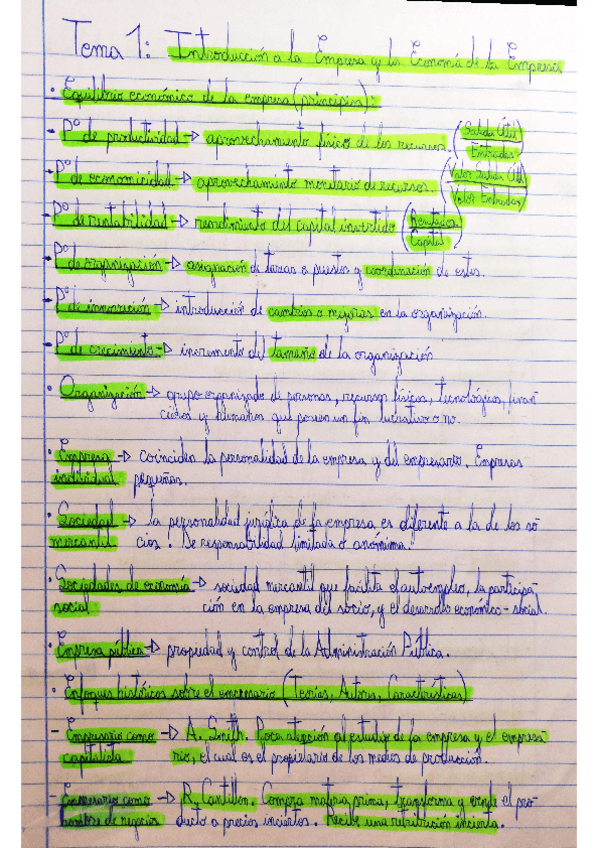 Tema 1: Introducción a la Empresa y la Economía de la Empresa
· Equilibrio económico de la empresa (principios):
- Pº de productividad → aprovechamiento físico de los recursos. (Salida (Útil) / Entradas)
- Pº de economicidad → aprovechamiento monetario de recursos. (Valor Salida (Útil) / Valor Entradas)
- Pº de rentabilidad → rendimiento del capital invertido (Resultados / Capital)
- Pº de organización → asignación de tareas a puestos y coordinación de estos.
- Pº de innovación → introducción de cambios o mejoras en la organización.
- Pº de crecimiento → incremento del tamaño de la organización
· Organización → grupo organizado de personas, recursos físicos, tecnológicos, finan-
cieros y humanos que poseen un fin lucrativo o no.
· Empresa → coinciden la personalidad de la empresa y del empresario. Empresas
individual pequeñas.
· Sociedad → la personalidad jurídica de la empresa es diferente a la de los so-
mercantil cios. De responsabilidad limitada o anónima.
· Sociedades de economía → sociedad mercantil que facilita el autoempleo, la participa-
social ción en la empresa del socio, y el desarrollo económico-social.
· Empresa pública → propiedad y control de la Administración Pública.
· Enfoques históricos sobre el empresario (Teorías, Autores, Características)
- Empresario como → A. Smith. Poca atención al estudio de la empresa y el empresa-
capitalista rio, el cual es el propietario de los medios de producción.
- Empresario como → R. Cantillon. Compra materia prima, transforma y vende el pro-
hombre de negocios ducto a precios inciertos. Recibe una retribución incierta.